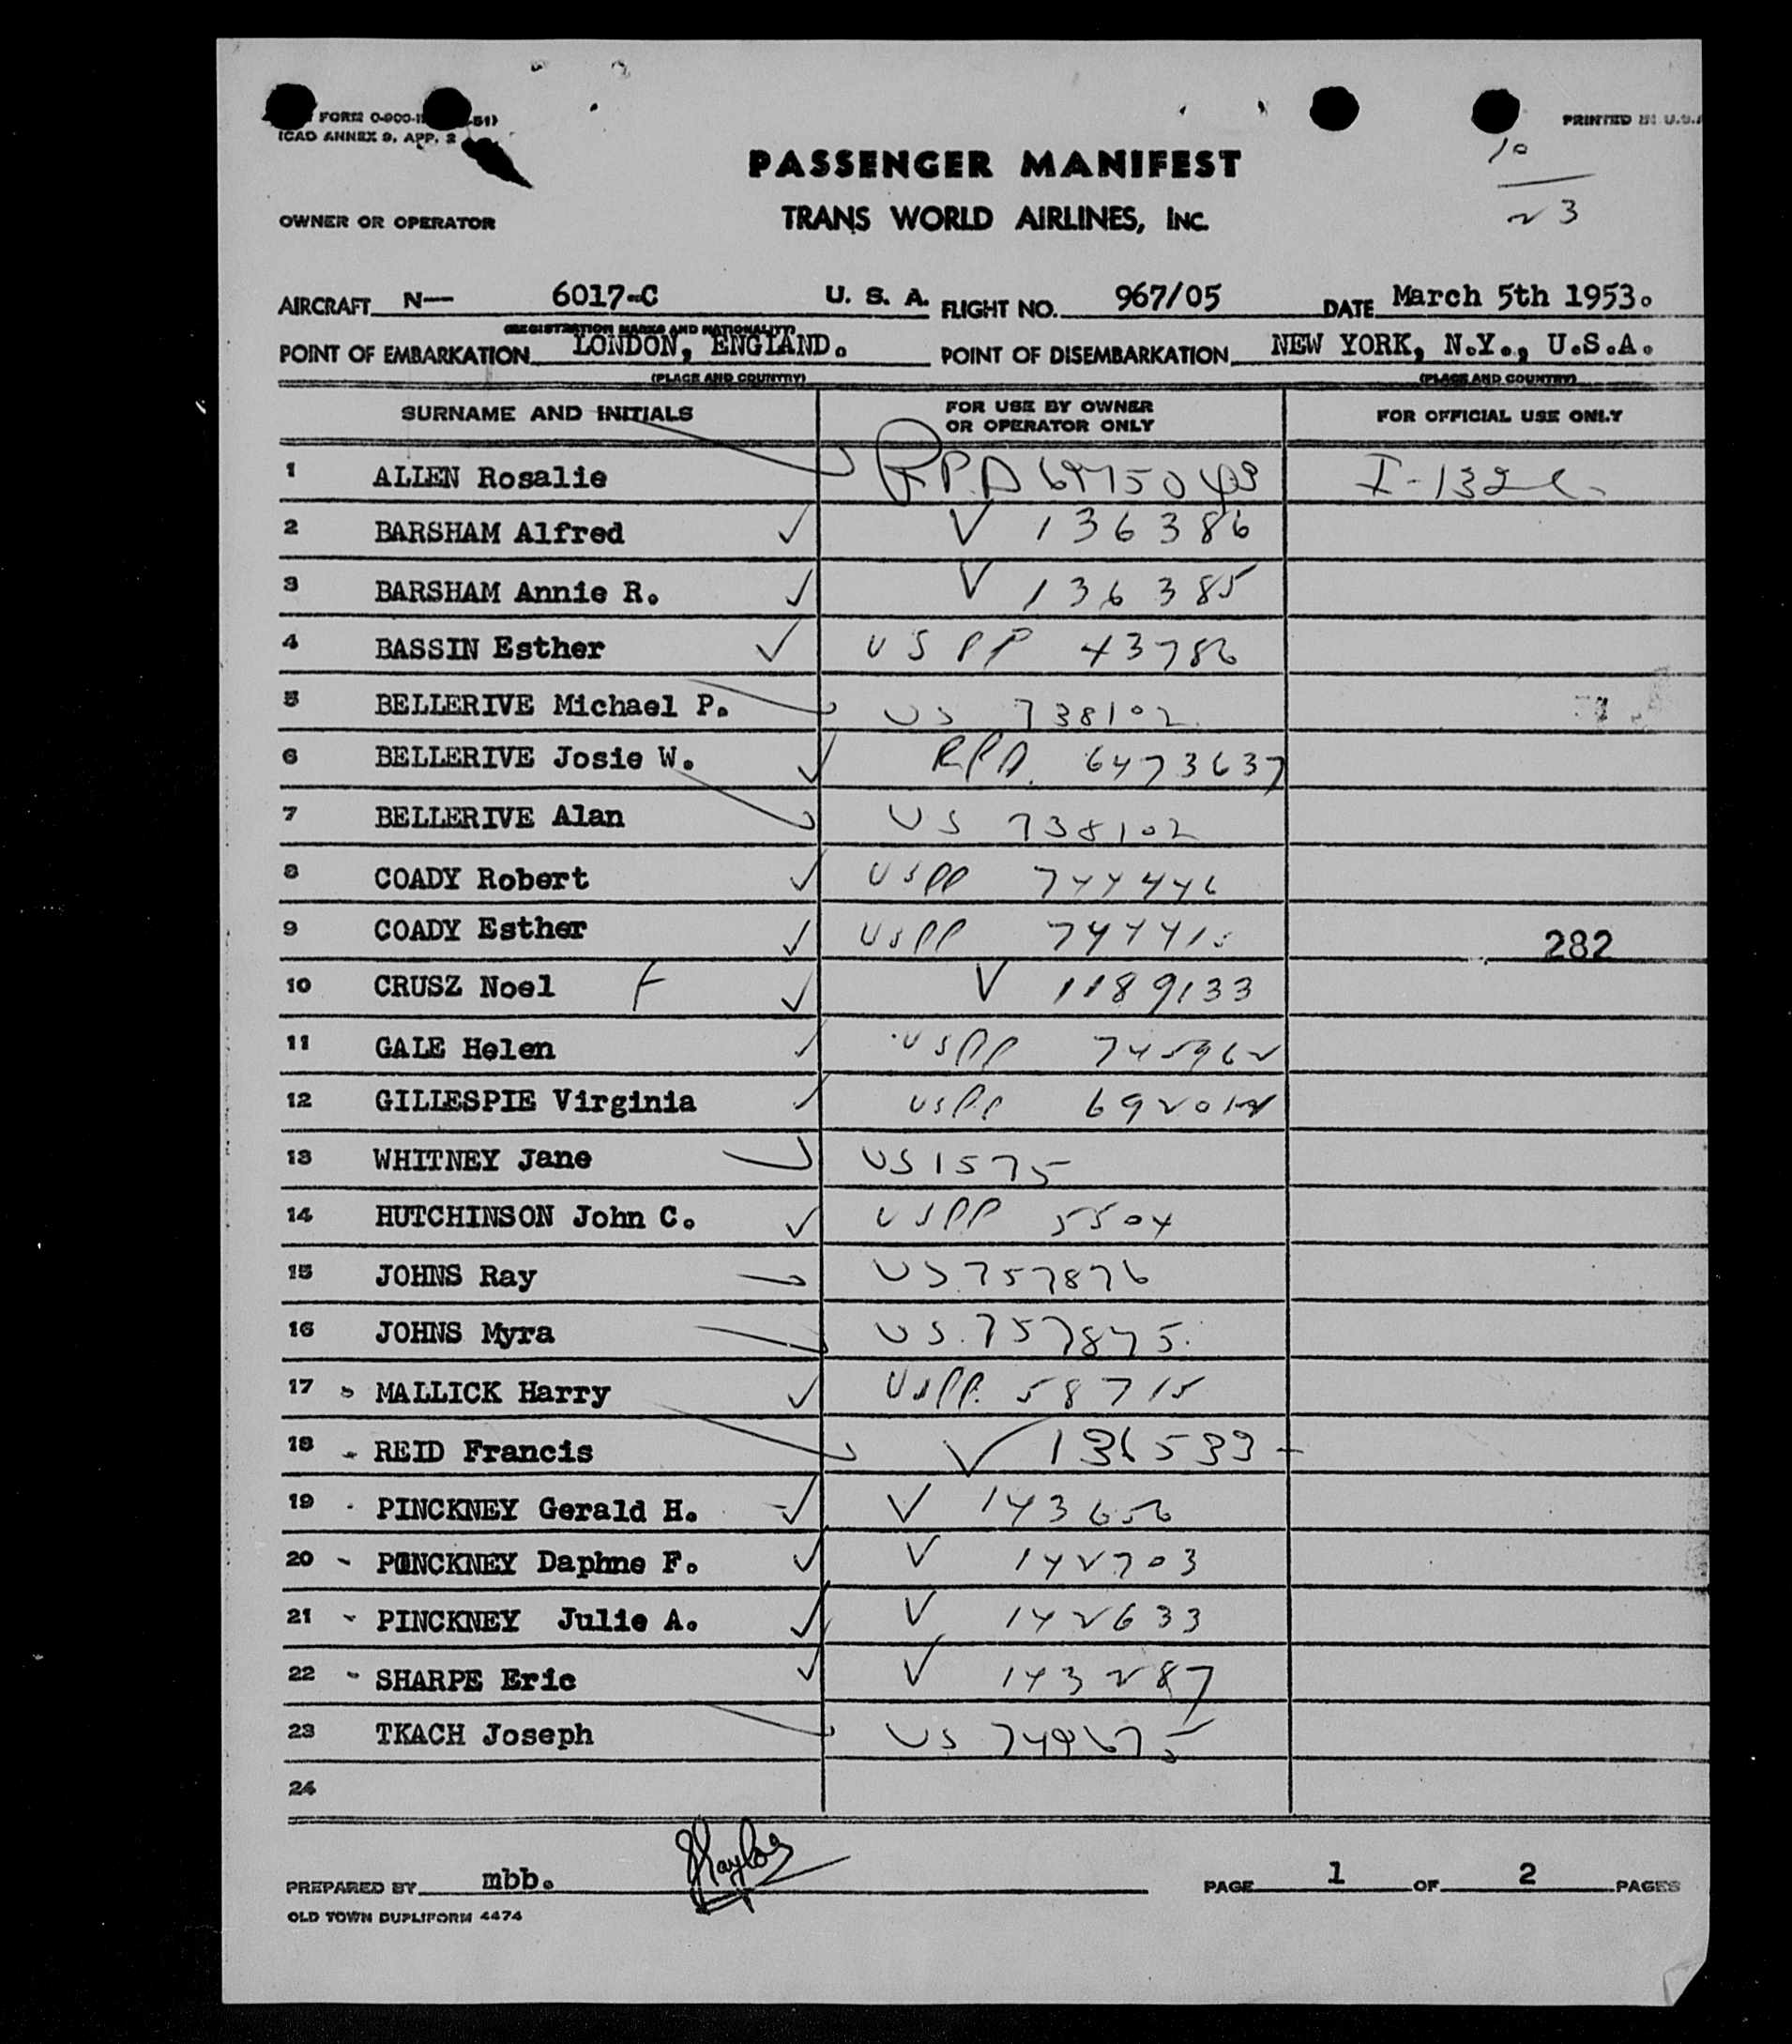 FORM 0-900-1 51)
ICAO ANNEX 9, APP. 2
PRINTED IN U.S.A
10
23
PASSENGER MANIFEST
OWNER OR OPERATOR TRANS WORLD AIRLINES, INC.
AIRCRAFT N— 6017-C U. S. A. FLIGHT NO. 967/05 DATE March 5th 1953.
(REGISTRATION MARKS AND NATIONALITY)
POINT OF EMBARKATION LONDON, ENGLAND. POINT OF DISEMBARKATION NEW YORK, N.Y., U.S.A.
(PLACE AND COUNTRY) (PLACE AND COUNTRY)
SURNAME AND INITIALS FOR USE BY OWNER OR OPERATOR ONLY FOR OFFICIAL USE ONLY
1 ALLEN Rosalie RPA I-132
2 BARSHAM Alfred ✓ V 136386
3 BARSHAM Annie R. ✓ V 136385
4 BASSIN Esther ✓ USPP 43786
5 BELLERIVE Michael P. US 738102
6 BELLERIVE Josie W. ✓ RPA 6473637
7 BELLERIVE Alan US 738102
8 COADY Robert ✓ USPP 744446
9 COADY Esther ✓ USPP 282
10 CRUSZ Noel F ✓ V 1189133
11 GALE Helen ✓ USPP 745962
12 GILLESPIE Virginia ✓ USPP
13 WHITNEY Jane US 1575
14 HUTCHINSON John C. ✓ USPP 5504
15 JOHNS Ray US 757876
16 JOHNS Myra US 757875
17 MALLICK Harry ✓ USPP 58715
18 REID Francis V 136533
19 PINCKNEY Gerald H. ✓ V 143656
20 PINCKNEY Daphne F. ✓ V 142703
21 PINCKNEY Julie A. ✓ V 142633
22 SHARPE Eric ✓ V 143287
23 TKACH Joseph US 749675
24
PREPARED BY mbb. PAGE 1 OF 2 PAGES
OLD TOWN DUPLIFORM 4474